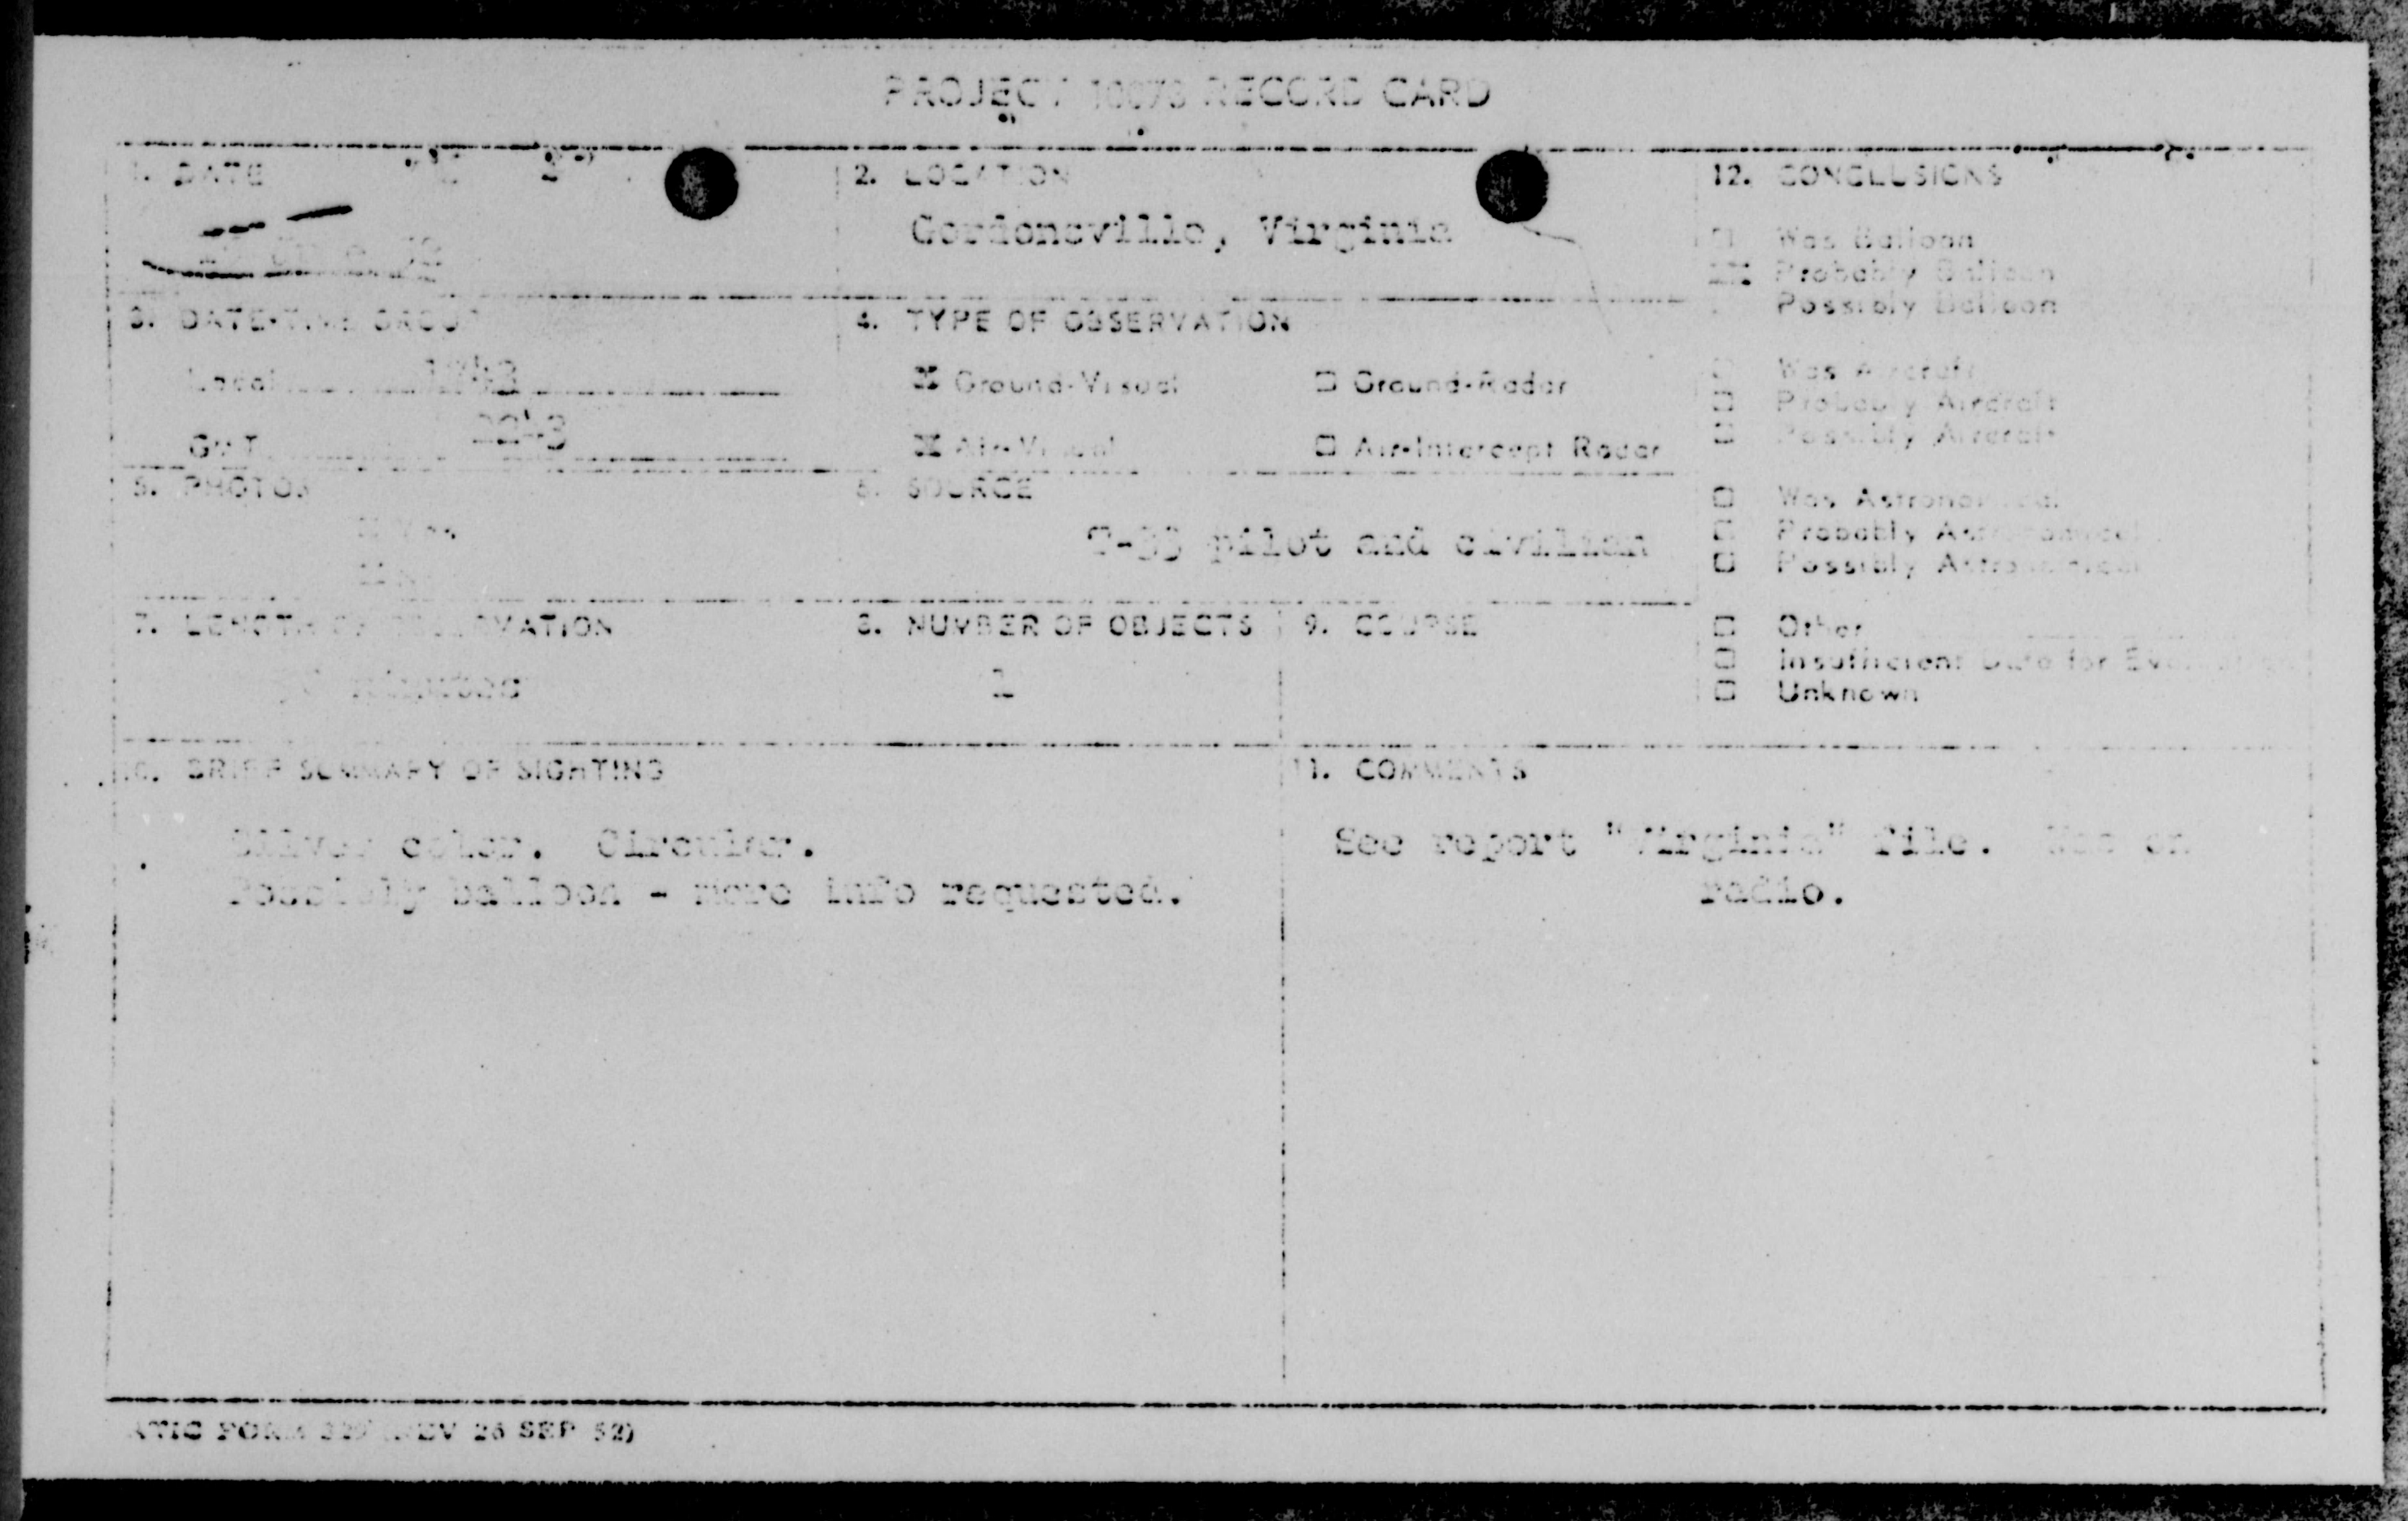 PROJECT 10073 RECORD CARD
1. DATE
2. LOCATION
Gordonsville, Virginia
12. CONCLUSIONS
Was Balloon
Probably Balloon
Possibly Balloon
3. DATE-TIME GROUP
Local
GMT 2243
4. TYPE OF OBSERVATION
Ground-Visual
Ground-Radar
Air-Visual
Air-Intercept Radar
Was Aircraft
Probably Aircraft
Possibly Aircraft
5. PHOTOS
Yes
6. SOURCE
pilot and civilian
Was Astronomical
Probably Astronomical
Possibly Astronomical
7. LENGTH OF OBSERVATION
minutes
8. NUMBER OF OBJECTS
9. COURSE
Other
Insufficient Data for Evaluation
Unknown
10. BRIEF SUMMARY OF SIGHTING
Silver color. Circular.
Possibly balloon - more info requested.
11. COMMENTS
See report "Virginia" file. on
radio.
ATIC FORM 329 (REV 26 SEP 52)